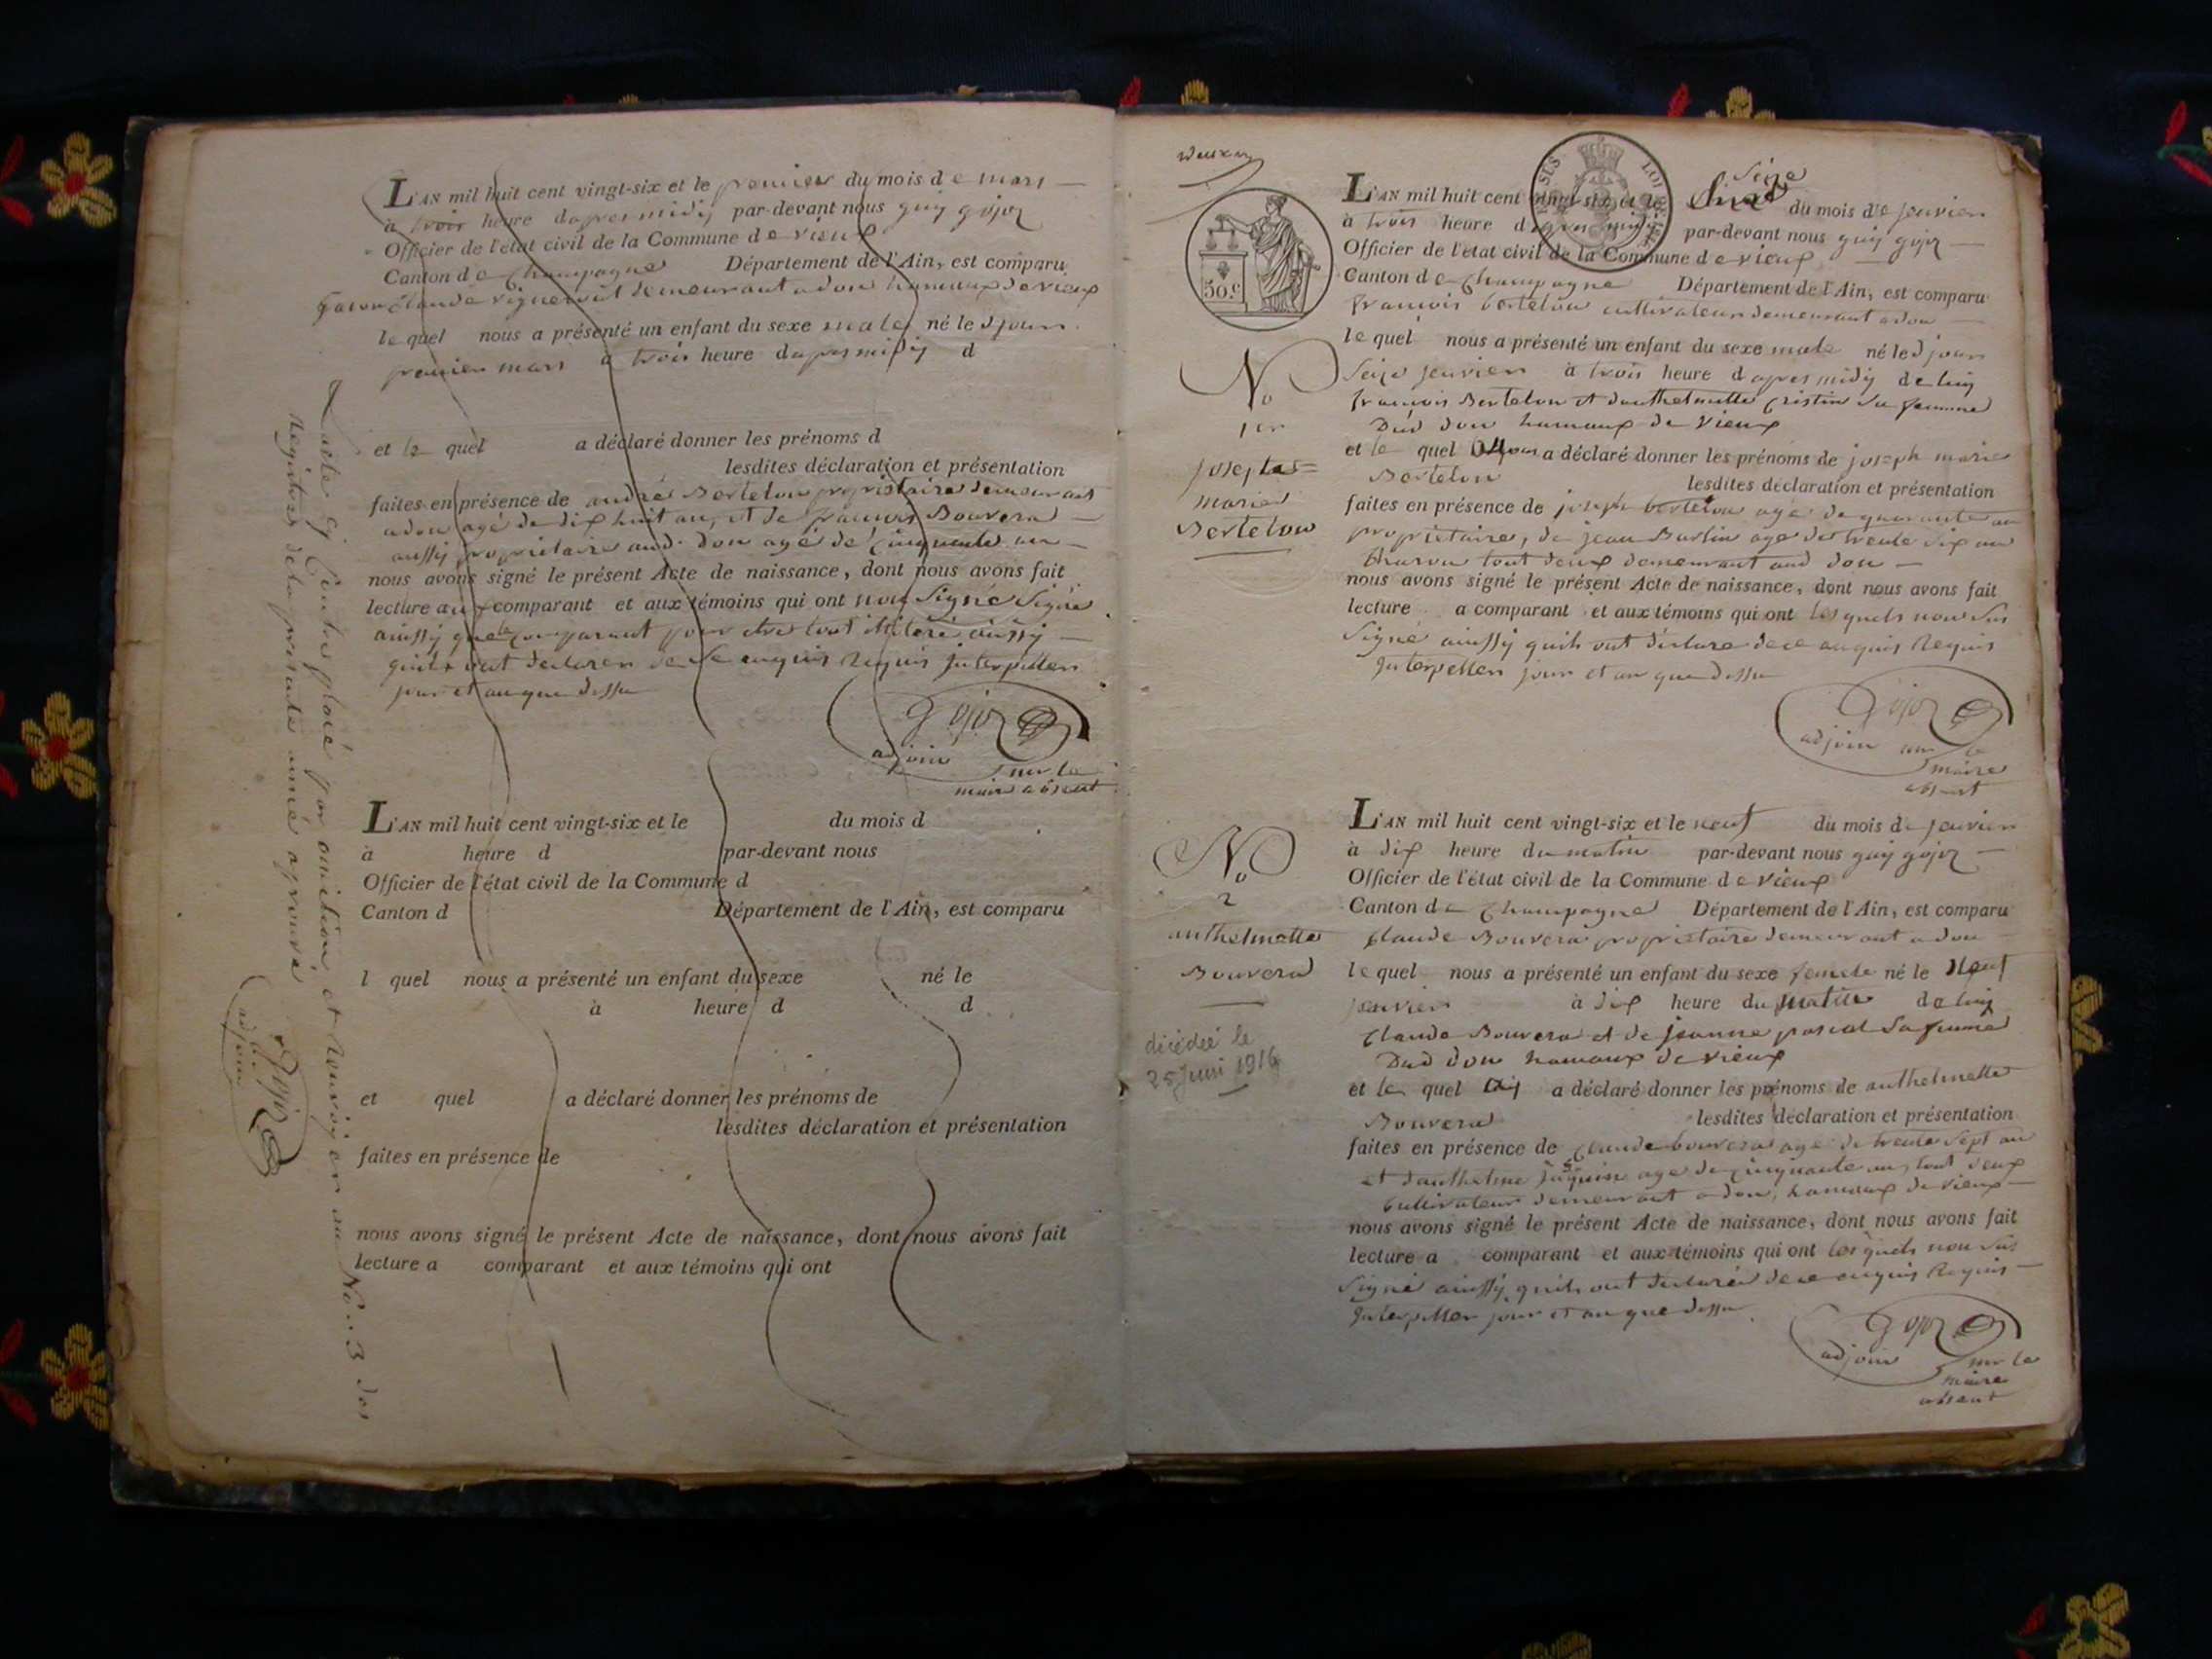 L'AN mil huit cent vingt-six et le premier du mois de mars
à trois heure dapres midij par-devant nous guij gojoz
Officier de l'état civil de la Commune de vieux
Canton de Champagne Département de l'Ain, est comparu
Claude demeurant a don hameaux de vieux
le quel nous a présenté un enfant du sexe male né le d jour
premier mars à trois heure dapres midij d
et le quel a déclaré donner les prénoms d
lesdites déclaration et présentation
faites en présence de andré Bertelon propriétaire demeurant
a don agé de dix huit an, et de francois Bouvera
aussij propriétaire aud. don agé de cinquante an
nous avons signé le présent Acte de naissance, dont nous avons fait
lecture aux comparant et aux témoins qui ont non Signe Signe
ainssij que le comparant pour etre tout illiteré ainssij
quils ont declarer de ce enquis requis interpeller
jour et an que dessu
Gojoz
adjoin
pour le
maire absent
L'AN mil huit cent vingt-six et le du mois d
à heure d par-devant nous
Officier de l'état civil de la Commune d
Canton d Département de l'Ain, est comparu
l quel nous a présenté un enfant du sexe né le
à heure d d
et quel a déclaré donner les prénoms de
lesdites déclaration et présentation
faites en présence de
nous avons signé le présent Acte de naissance, dont nous avons fait
lecture a comparant et aux témoins qui ont
Lacte cy Contre placé par omition et au No. 3 des
Registres de la presante anné aprouvé
Gojoz
adjoin
50.c
L'AN mil huit cent vingt-six et le Seize du mois de jenvier
à trois heure dapres midij par-devant nous guij gojoz
Officier de l'état civil de la Commune de vieux
Canton de Champagne Département de l'Ain, est comparu
francois bertelon cultivateur demeurant a don
le quel nous a présenté un enfant du sexe male né le d jour
Seize jenvier à trois heure dapres midij de luij
francois Bertelon et danthelmette cristin sa femme
Dud don hameaux de Vieux
et le quel a déclaré donner les prénoms de joseph marie
Bertelon lesdites déclaration et présentation
faites en présence de joseph bertelon agé de quarante an
propriétaire, de jean Burlin agé de trente six an
tout deux demeurant aud don
nous avons signé le présent Acte de naissance, dont nous avons fait
lecture a comparant et aux témoins qui ont les quels non Sus
Signé ainssij quils ont declare de ce enquis Requis
Interpeller jour et an que dessu
Gojoz
adjoin
pour le
maire
absent
No
1er
joseph
marie
Bertelon
L'AN mil huit cent vingt-six et le neuf du mois de jenvier
à dix heure du matin par-devant nous guij gojoz
Officier de l'état civil de la Commune de vieux
Canton de Champagne Département de l'Ain, est comparu
Claude Bouvera propriétaire demeurant a don
le quel nous a présenté un enfant du sexe femele né le Neuf
jenvier à dix heure du matin de luij
Claude Bouvera et de jeanne pascal Sa femme
Dud don hameaux de vieux
et le quel a déclaré donner les prénoms de anthelmette
Bouvera lesdites déclaration et présentation
faites en présence de Claude bouvera agé de trente Sept an
et danthelme agé de cinquante an, tout deux
Cultivateur demeurant a don, hameaux de vieux
nous avons signé le présent Acte de naissance, dont nous avons fait
lecture a comparant et aux témoins qui ont les quels non Sus
Signé ainssij quils ont declaré de ce enquis Requis
Interpeller jour et an que dessu
Gojoz
adjoin
pour le
maire
absent
No
2
anthelmette
Bouvera
décédée le
25 juin 1916